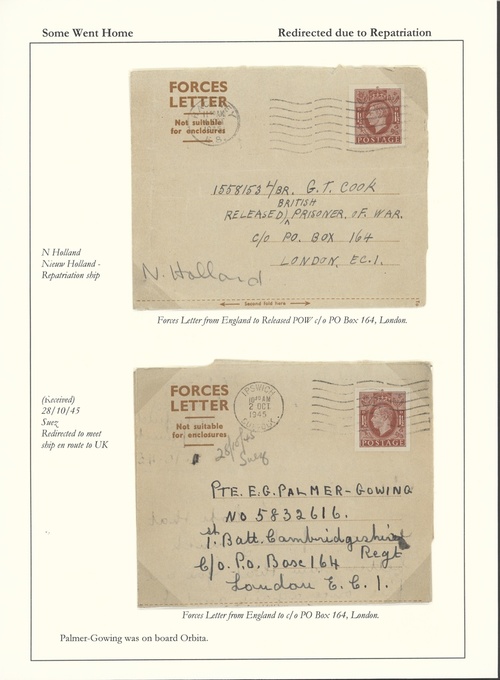 Some Went Home
Redirected due to Repatriation
FORCES
LETTER
Not suitable
for enclosures
POSTAGE
1558153 L/BR. G.T. COOK
BRITISH
RELEASED PRISONER OF WAR.
C/O PO. BOX 164
LONDON, EC.1.
N. Holland
Second fold here
N Holland
Nieuw Holland -
Repatriation ship
Forces Letter from England to Released POW c/o PO Box 164, London.
FORCES
LETTER
Not suitable
for enclosures
IPSWICH
AM
2 OCT
1945
SUFFOLK
POSTAGE
28/10/45
Suez
(Received)
28/10/45
Suez
Redirected to meet
ship en route to UK
PTE. E.G. PALMER-GOWING
NO 5832616.
1st. Batt. Cambridgeshire
Regt
C/o. P.o. Box 164
London E.C.1.
Forces Letter from England to c/o PO Box 164, London.
Palmer-Gowing was on board Orbita.